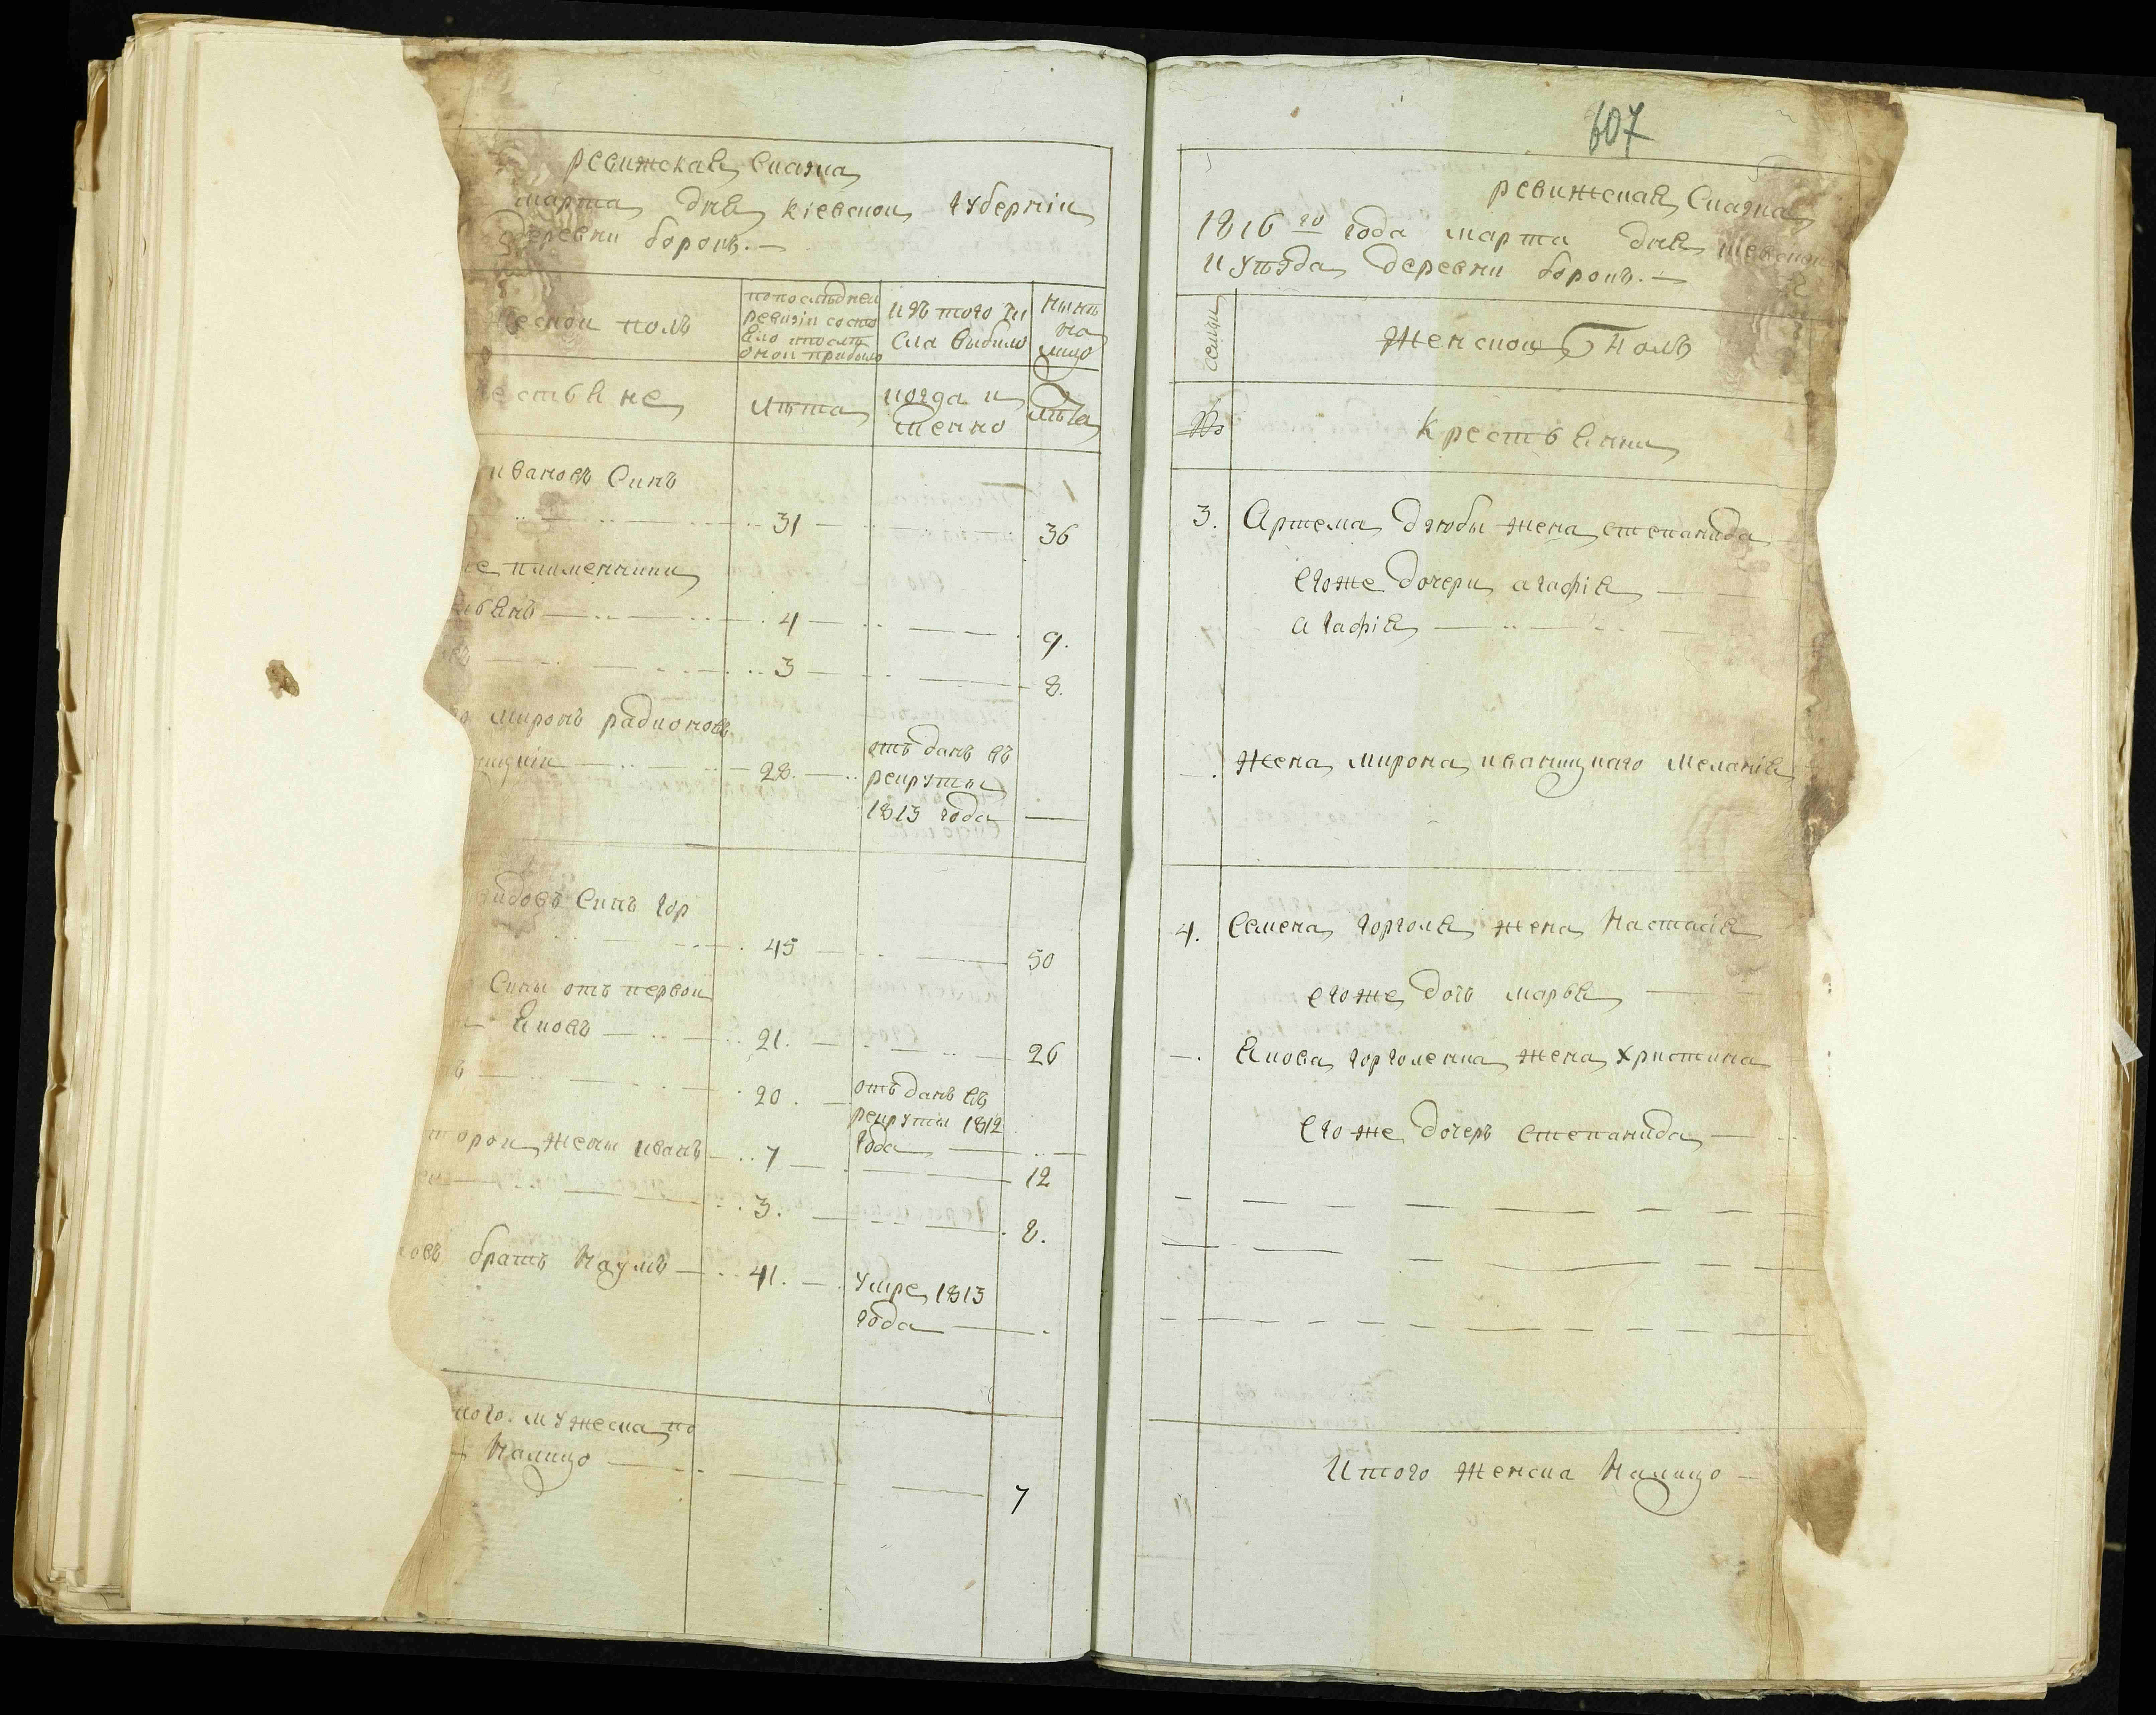 ревижская Сказка
марта дня кіевской губерніи
деревни боровъ.—
жеской полъ
попослѣдней
ревизіи состо
яло
оной прибыло
изъ того чи
сла выбыло
нынѣ
на
лицо
лѣта
когда и
имено
лѣта
ивановъ Синъ
31 36
племенники
4 9.
3 8.
миронъ радионовъ
28. отъданъ въ
рекруты
1813 года
Синъ гор
45 50
Сины отъ первои
Яковъ 21. 26
20. отъданъ въ
рекруты 1812
года
жены иванъ 7 12
3. 8.
братъ Наумъ 41. умре 1813
года
мужеска по
Налицо
7
607
ревижская Сказка
1816 го года марта дня кіевской
и уѣзда деревни боровъ.—
семьи
Женской Полъ
№
Крестьянки
3. Артема дзюбы жена степанида
егоже дочери агафія
агафія
Жена мирона иваницкаго меланія
4. Семена горголя жена Настасія
егоже дочь марья
Якова горголенка жена христина
его же дочеръ Степанида
Итого женска Налицо